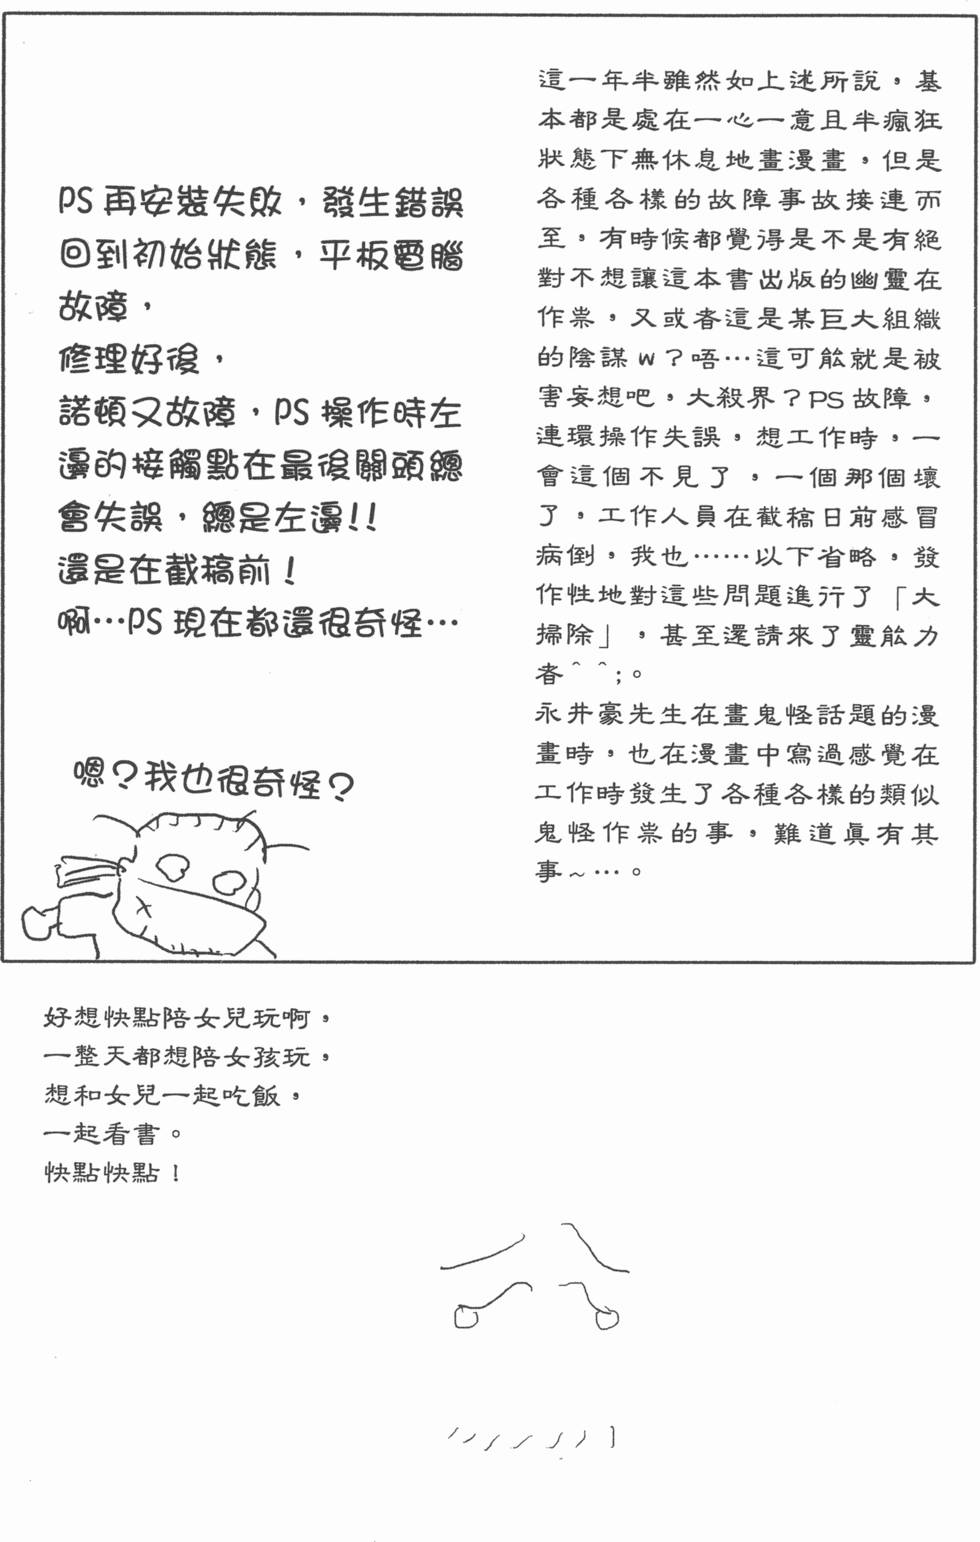 這一年半雖然如上述所說，基
本都是處在一心一意且半瘋狂
狀態下無休息地畫漫畫，但是
各種各樣的故障事故接連而
至，有時候都覺得是不是有絕
對不想讓這本書出版的幽靈在
作祟，又或者這是某巨大組織
的陰謀w？唔…這可能就是被
害妄想吧，大殺界？PS故障，
連環操作失誤，想工作時，一
會這個不見了，一個那個壞
了，工作人員在截稿日前感冒
病倒，我也……以下省略，發
作性地對這些問題進行了「大
掃除」，甚至還請來了靈能力
者^ ^;。
永井豪先生在畫鬼怪話題的漫
畫時，也在漫畫中寫過感覺在
工作時發生了各種各樣的類似
鬼怪作祟的事，難道真有其
事~…。
PS再安裝失敗，發生錯誤
回到初始狀態，平板電腦
故障，
修理好後，
諾頓又故障，PS操作時左
邊的接觸點在最後關頭總
會失誤，總是左邊!!
還是在截稿前！
啊…PS現在都還很奇怪…
嗯？我也很奇怪？
好想快點陪女兒玩啊，
一整天都想陪女孩玩，
想和女兒一起吃飯，
一起看書。
快點快點！